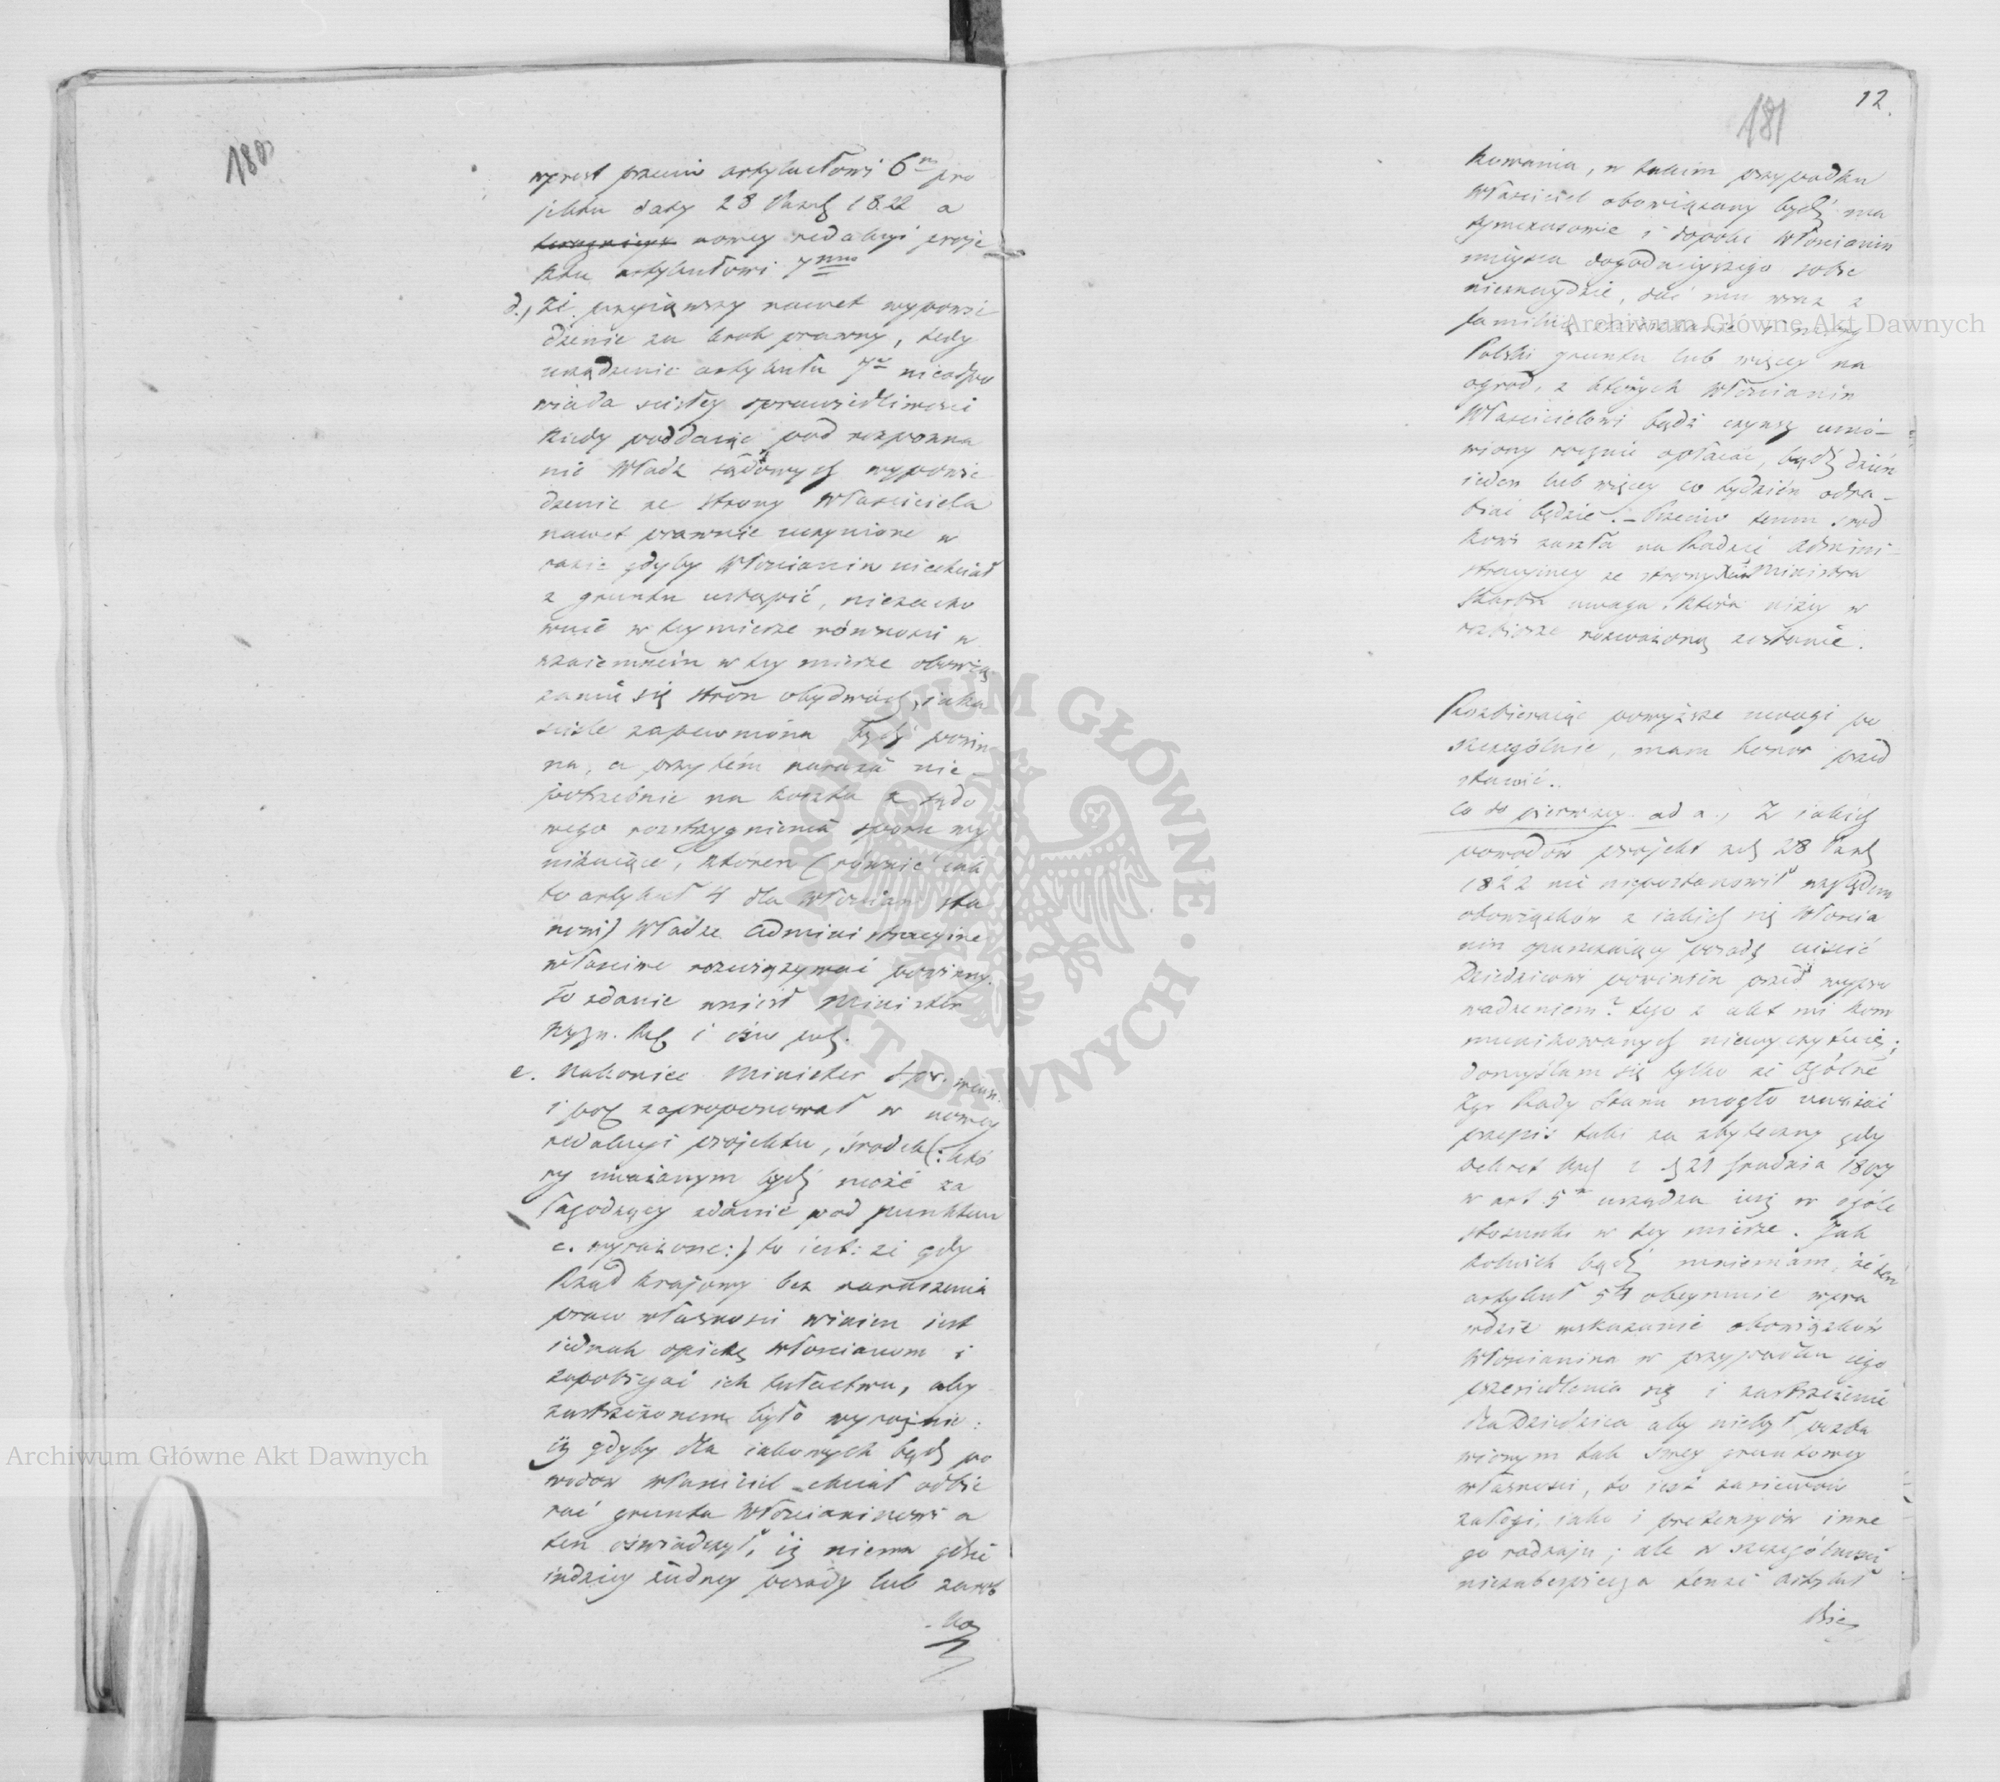 180
wprost przeciw artykułowi 6mu pro
jektu daty 28 Paźd 1822 a
nowey redakcyi proje
ktu artykułowi 7mu
d., że przyiąwszy nawet wypowie
dzenie za krok prawny, tedy
urządzenie artykułu 7o nieodpo
wiada scisłey sprawiedliwosci
kiedy poddaiąc pod rozpozna
nie Władz sądowych wypowie
dzenie ze strony Własciciela
nawet prawnie uczynione w
razie gdyby Włoscianin niechciał
z gruntu ustąpić, niezacho
wuie w tey mierze równosci w
wzaiemném w tey mierze obowią
zaniu się stron obydwóch, iaka
scisle zapewnióna bydź powin
na, a przytém naraża nie-
potrzebnie na koszta z sądo
wego rozstrzygnienia sporu wy
nikaiące, któren (równie iak
to artykuł 4 dla Włoscian sta
nowi) Władze Administracyine
własciwe rozwiązywać powinny.
To zdanie wniosł Minister
Wyzn. Rel i Ośw pub.
e. Nakoniec Minister Spr. wewn.
i pol zaproponował w nowey
redakcyi projektu, środek (: któ
ry uważanym bydź może za
łagodzący zdanie pod punktem
c. wyrażone:) to iest: że gdy
Rząd kraiowy bez naruszenia
praw własnosci winien iest
iednak opiekę włoscianom i
zapobiegać ich tułactwu, aby
zastrzeżonem było wyraźnie:
iż gdyby dla iakowych bądź po
wodów własciciel chciał odbie
rać grunta Włoscianinowi a
ten oświadczył, iż niema gdzie
indziey żadney posady lub zarob
ko
12.
181
kowania, w takim przypadku
Własciciel obowiązany bydź ma
tymczasowie i dopóki Włoscianin
mieysca dogodnieyszego sobie
nieznaydzie, dać mu wraz z
familią
Polski gruntu lub więcey na
ogród, z których Włoscianin
Własscicielowi bądź czynsz umó-
wiony rocznie opłacać, bądź dzień
ieden lub więcey co tydzień odra-
biać będzie. - Przeciw temu srod
kowi zaszła na Radzie Admini-
stracyiney ze strony Ministra
Skarbu uwaga która niżey w
rozbiorze rozważoną zostanie.
Rozbieraiąc powyższe uwagi po
szczególnie, mam honor przed
stawić.
Co do pierwszey ad a., Z iakich
powodów projekt zd 28 Paźd
1822 nie niepostanowił względem
obowiązków z iakich się Włoscia
nin opuszczaiący posadę uiścić
Dziedzicowi powinien przed wypro
wadzeniem? tego z akt mi kom
munikowanych niewyczytuię;
domyślam się tylko że Ogólne
Zgr Rady Stanu mogło uważać
przepis taki za zbyteczny gdy
Dekret Krol z d 21 Grudnia 1807
w art 5m urządza iuż w ogóle
stosunki w tey mierze. Jak
kolwiek bądź mniemam, że ten
artykuł 5ty obeymuie wpra
wdzie wskazanie obowiązków
Włoscianina w przypadku iego
przesiedlenia się i zastrzeżenie
dla Dziedzica aby niebył pozba
wionym tak swey gruntowey
własnosci, to iest zasiewów
załogi, iako i pretensyów inne
go rodzaju; ale w szczególnosci
niezabespiecza tenże Artykuł
Dzie
Archiwum Główne Akt Dawnych
Archiwum Główne Akt Dawnych
ARCHIWUM GŁÓWNE · AKT DAWNYCH ·